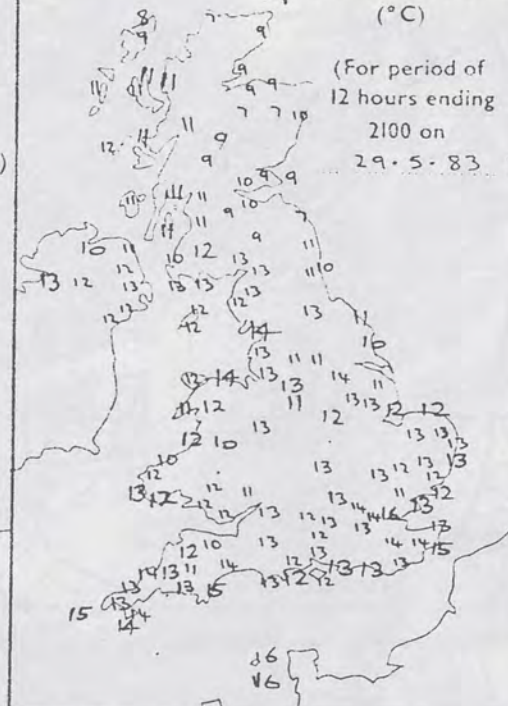 (°C)
(For period of
12 hours ending
2100 on
29·5·83
8 7
9 9
11 11 11 9
11 9 9
7 7 10
12 11 11 9
9
10 9 9
11 11 11 10
9 7
11 11 9
10 11 11
10 12 13
13 12 12 13 13 13 13 11 10
12 12 12 12 12 13 13
14 11
10
13 14 13 13 11 11
13 14 11
11 12 11 13 13 12 12
12
12 10 13 13 13
13
10 13 12 13 13
12 13 12
13 12 12 11 13 11 13 12
12 12 13 12 13 14 14 16
12 13 13
12 10 13 12 14 14 15
13
14 13 11 14 12 13 13 13
13 13 15 13 12 12
15 13 14
14
16
16